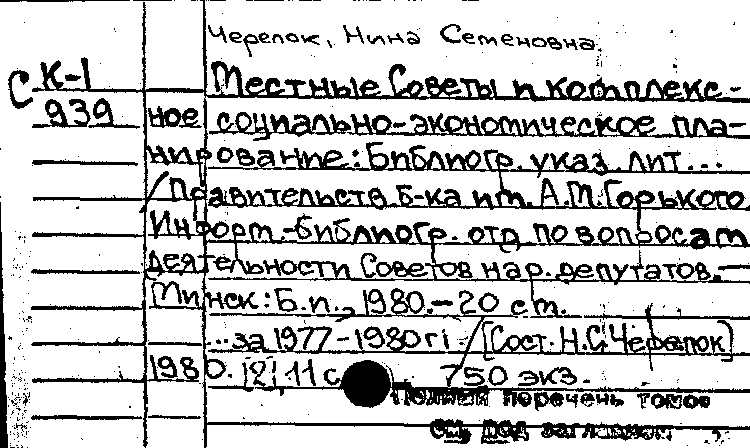 Черепок, Нина Семеновна.
С К-1
939
Местные Советы и комплекс-
ное социально-экономическое пла-
нирование: Библиогр. указ. лит...
/Правительств. б-ка им. А.М. Горького.
Информ.-библиогр. отд. по вопросам
деятельности Советов нар. депутатов.—
Минск: Б.и., 1980.— 20 см.
...за 1977-1980гг. / [Сост. Н.С. Черепок]
1980. [2], 11 с. 750 экз.
Полный перечень томов
см. под заглавием